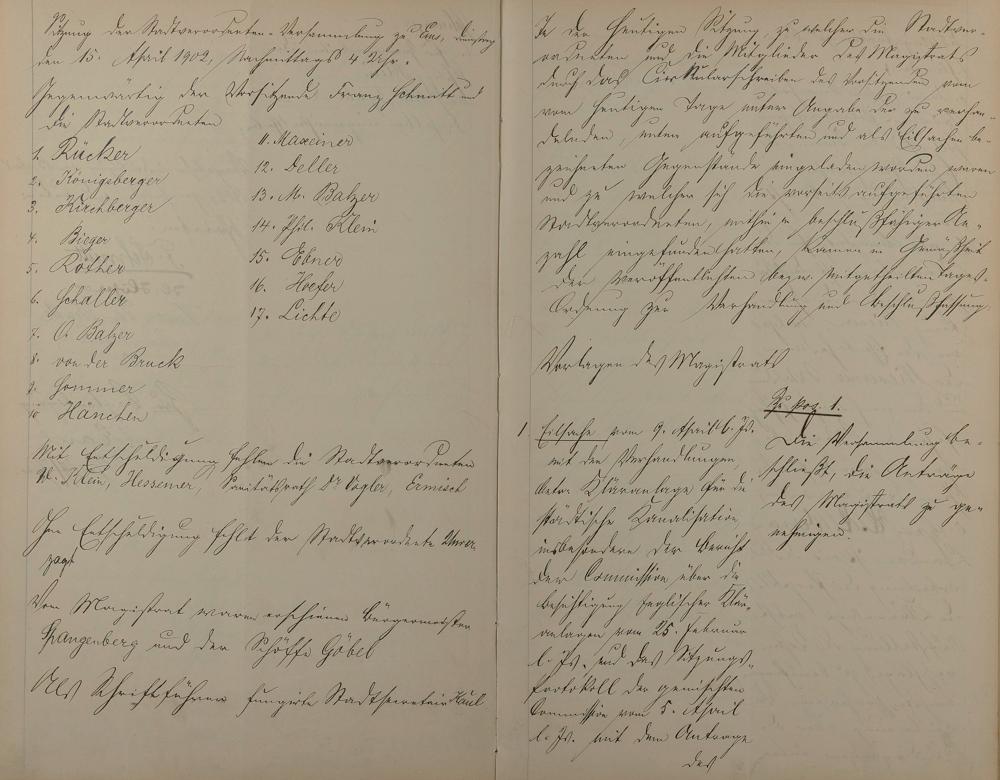 Sitzung der Stadtverordneten-Versammlung zu Ems, Dienstag
den 15. April 1902, Nachmittags 4 Uhr.
Gegenwärtig der Vorsitzende Franz Schmitt und
die Stadtverordneten
1. Rücker
2. Königsberger
3. Kirchberger
4. Bieger
5. Rother
6. Schaller
7. O. Balzer
8. von der Bruck
9. Sommer
10 Hänchen
11. Maxeiner
12. Deller
13. M. Balzer
14. Phil. Klein
15. Ebner
16. Hoefer
17. Lichte
Mit Entschuldigung fehlen die Stadtverordneten
W. Klein, Hessemer, Sanitätsrath Dr Vogler, Ermisch
Ohne Entschuldigung fehlt der Stadtverordnete Unver-
zagt
Vom Magistrat waren erschienen Bürgermeister
Spangenberg und der Schöffe Göbel
Als Schriftführer fungirte Stadtsecretair Kaul
In der heutigen Sitzung, zu welcher die Stadtver-
ordneten und die Mitglieder des Magistrats
durch das Cirkularschreiben des Vorsitzenden vom
vom heutigen Tage unter Angabe der zu verhan-
delnden, unten aufgeführten und als Eilsachen be-
zeichneten Gegenstände eingeladen worden waren
und zu welcher sich die vorseits aufgeführten
Stadtverordneten, mithin in beschlußfähiger An-
zahl eingefunden hatten, kamen in Gemäßheit
der veröffentlichten bezw. mitgetheilten Tages-
Ordnung zur Verhandlung und Beschlußfassung.
Vorlagen des Magistrats
1 Eilsache vom 9. April l. Js.
mit den Verhandlungen
betr. Kläranlage für die
städtische Kanalisation
insbesondere der Bericht
der Commission über die
Besichtigung englischer Klär-
anlagen vom 25. Februar
l. Js. und das Sitzungs-
protokoll der gemischten
Commission vom 5. April
l. Js. mit dem Antrage
des
Zu pos 1.
Die Versammlung be-
schließt, die Anträge
des Magistrats zu ge-
nehmigen.